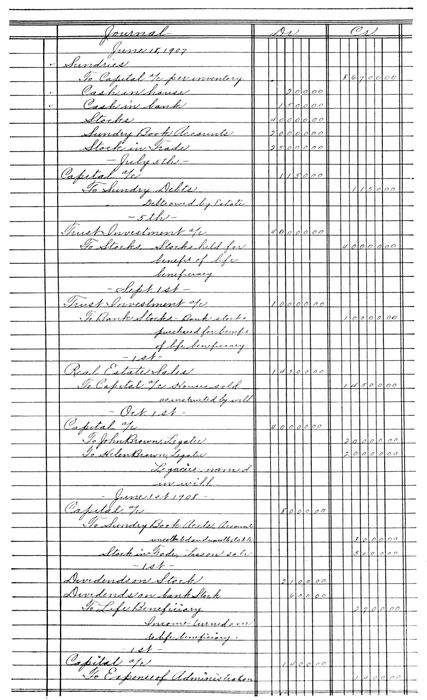 Journal Dr Cr
June 18, 1907
Sundries
To Capital a/c per inventory 8670000
Cash in house 20000
Cash in bank 150000
Stocks 4000000
Sundry Book Accounts 2000000
Stock in Trade 2500000
- July 5th -
Capital a/c 115000
To Sundry Debts 115000
Debts owed by Estate
- 5th -
Trust Investment a/c 4000000
To Stocks, Stocks held for 4000000
benefit of life
beneficiary
- Sept 1st -
Trust Investment a/c 1000000
To Bank Stocks - Bank stocks 1000000
purchased for benefit
of life beneficiary
- 1st -
Real Estate Sales 1450000
To Capital a/c Houses sold 1450000
as instructed by will
- Oct 1st -
Capital a/c 4000000
To John Brown, Legatee 2000000
To Helen Brown, Legatee 2000000
Legacies named
in will
- June 1st 1908 -
Capital a/c 800000
To Sundry Book Accts Accounts
uncollected and uncollectable 300000
Stock in Trade, loss on sale 500000
- 1st -
Dividends on Stock 210000
Dividends on bank Stock 60000
To Life Beneficiary 270000
Income turned over
to life beneficiary.
- 1st -
Capital a/c 140000
To Expense of Administration 140000